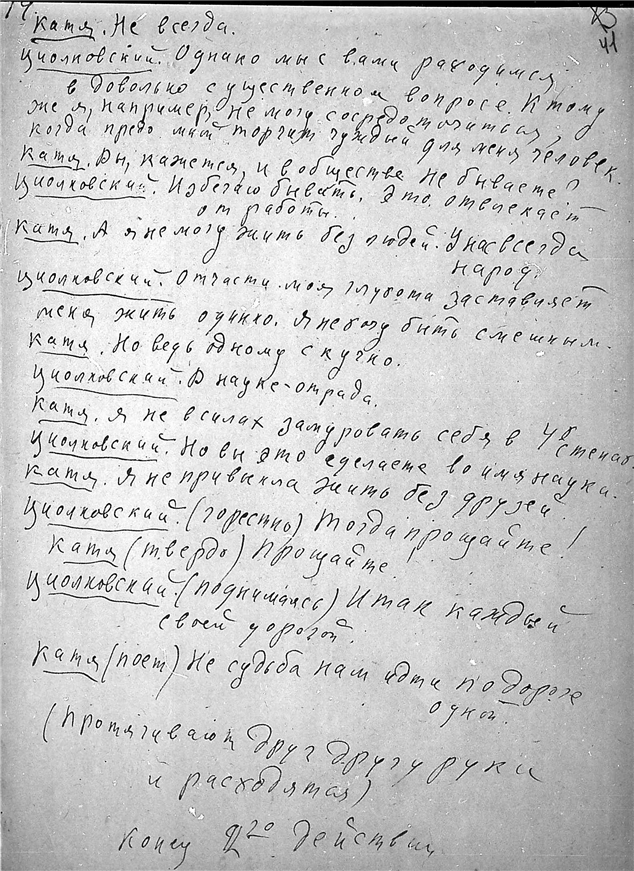 14
41
Катя. Не всегда.
Циолковский. Однако мы с вами расходимся
в довольно существенном вопросе. К тому
же я, например, не могу сосредоточиться,
когда предо мной торчит чуждый для меня человек.
Катя. Вы, кажется, и в обществе не бываете?
Циолковский. Избегаю бывать. Это отвлекает
от работы.
Катя. А я не могу жить без людей. У нас всегда
народ.
Циолковский. Отчасти моя глухота заставляет
меня жить одиноко. Я не хочу быть смешным.
Катя. Но ведь одному скучно.
Циолковский. В науке - отрада.
Катя. Я не в силах замуровать себя в 4х стенах.
Циолковский. Но вы это сделаете во имя науки.
Катя. Я не привыкла жить без друзей.
Циолковский. (горестно) Тогда прощайте!
Катя (твердо) Прощайте!
Циолковский. (поднимаясь) Итак каждый
своей дорогой.
Катя (поет) Не судьба нам идти по дороге
одной.
(протягивают друг другу руки
и расходятся)
Конец 2го действия